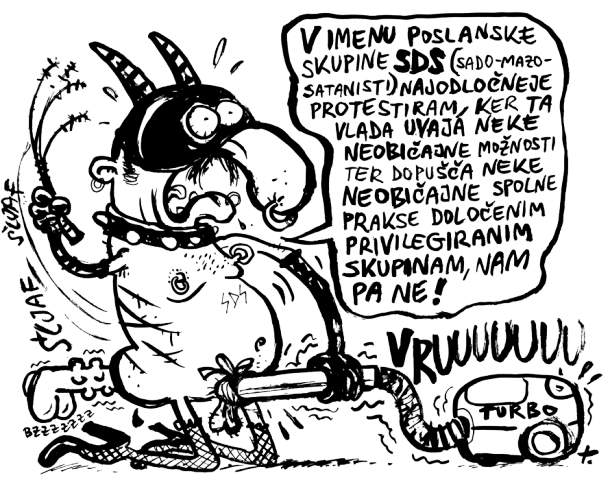 V IMENU POSLANSKE
SKUPINE SDS (SADO-MAZO-
SATANISTI) NAJODLOČNEJE
PROTESTIRAM, KER TA
VLADA UVAJA NEKE
NEOBIČAJNE MOŽNOSTI
TER DOPUŠČA NEKE
NEOBIČAJNE SPOLNE
PRAKSE DOLOČENIM
PRIVILEGIRANIM
SKUPINAM, NAM
PA NE!
ŠVJAF
ŠVJAF
SDS
VRUUUUUUU
BZZZZZZZ
TURBO